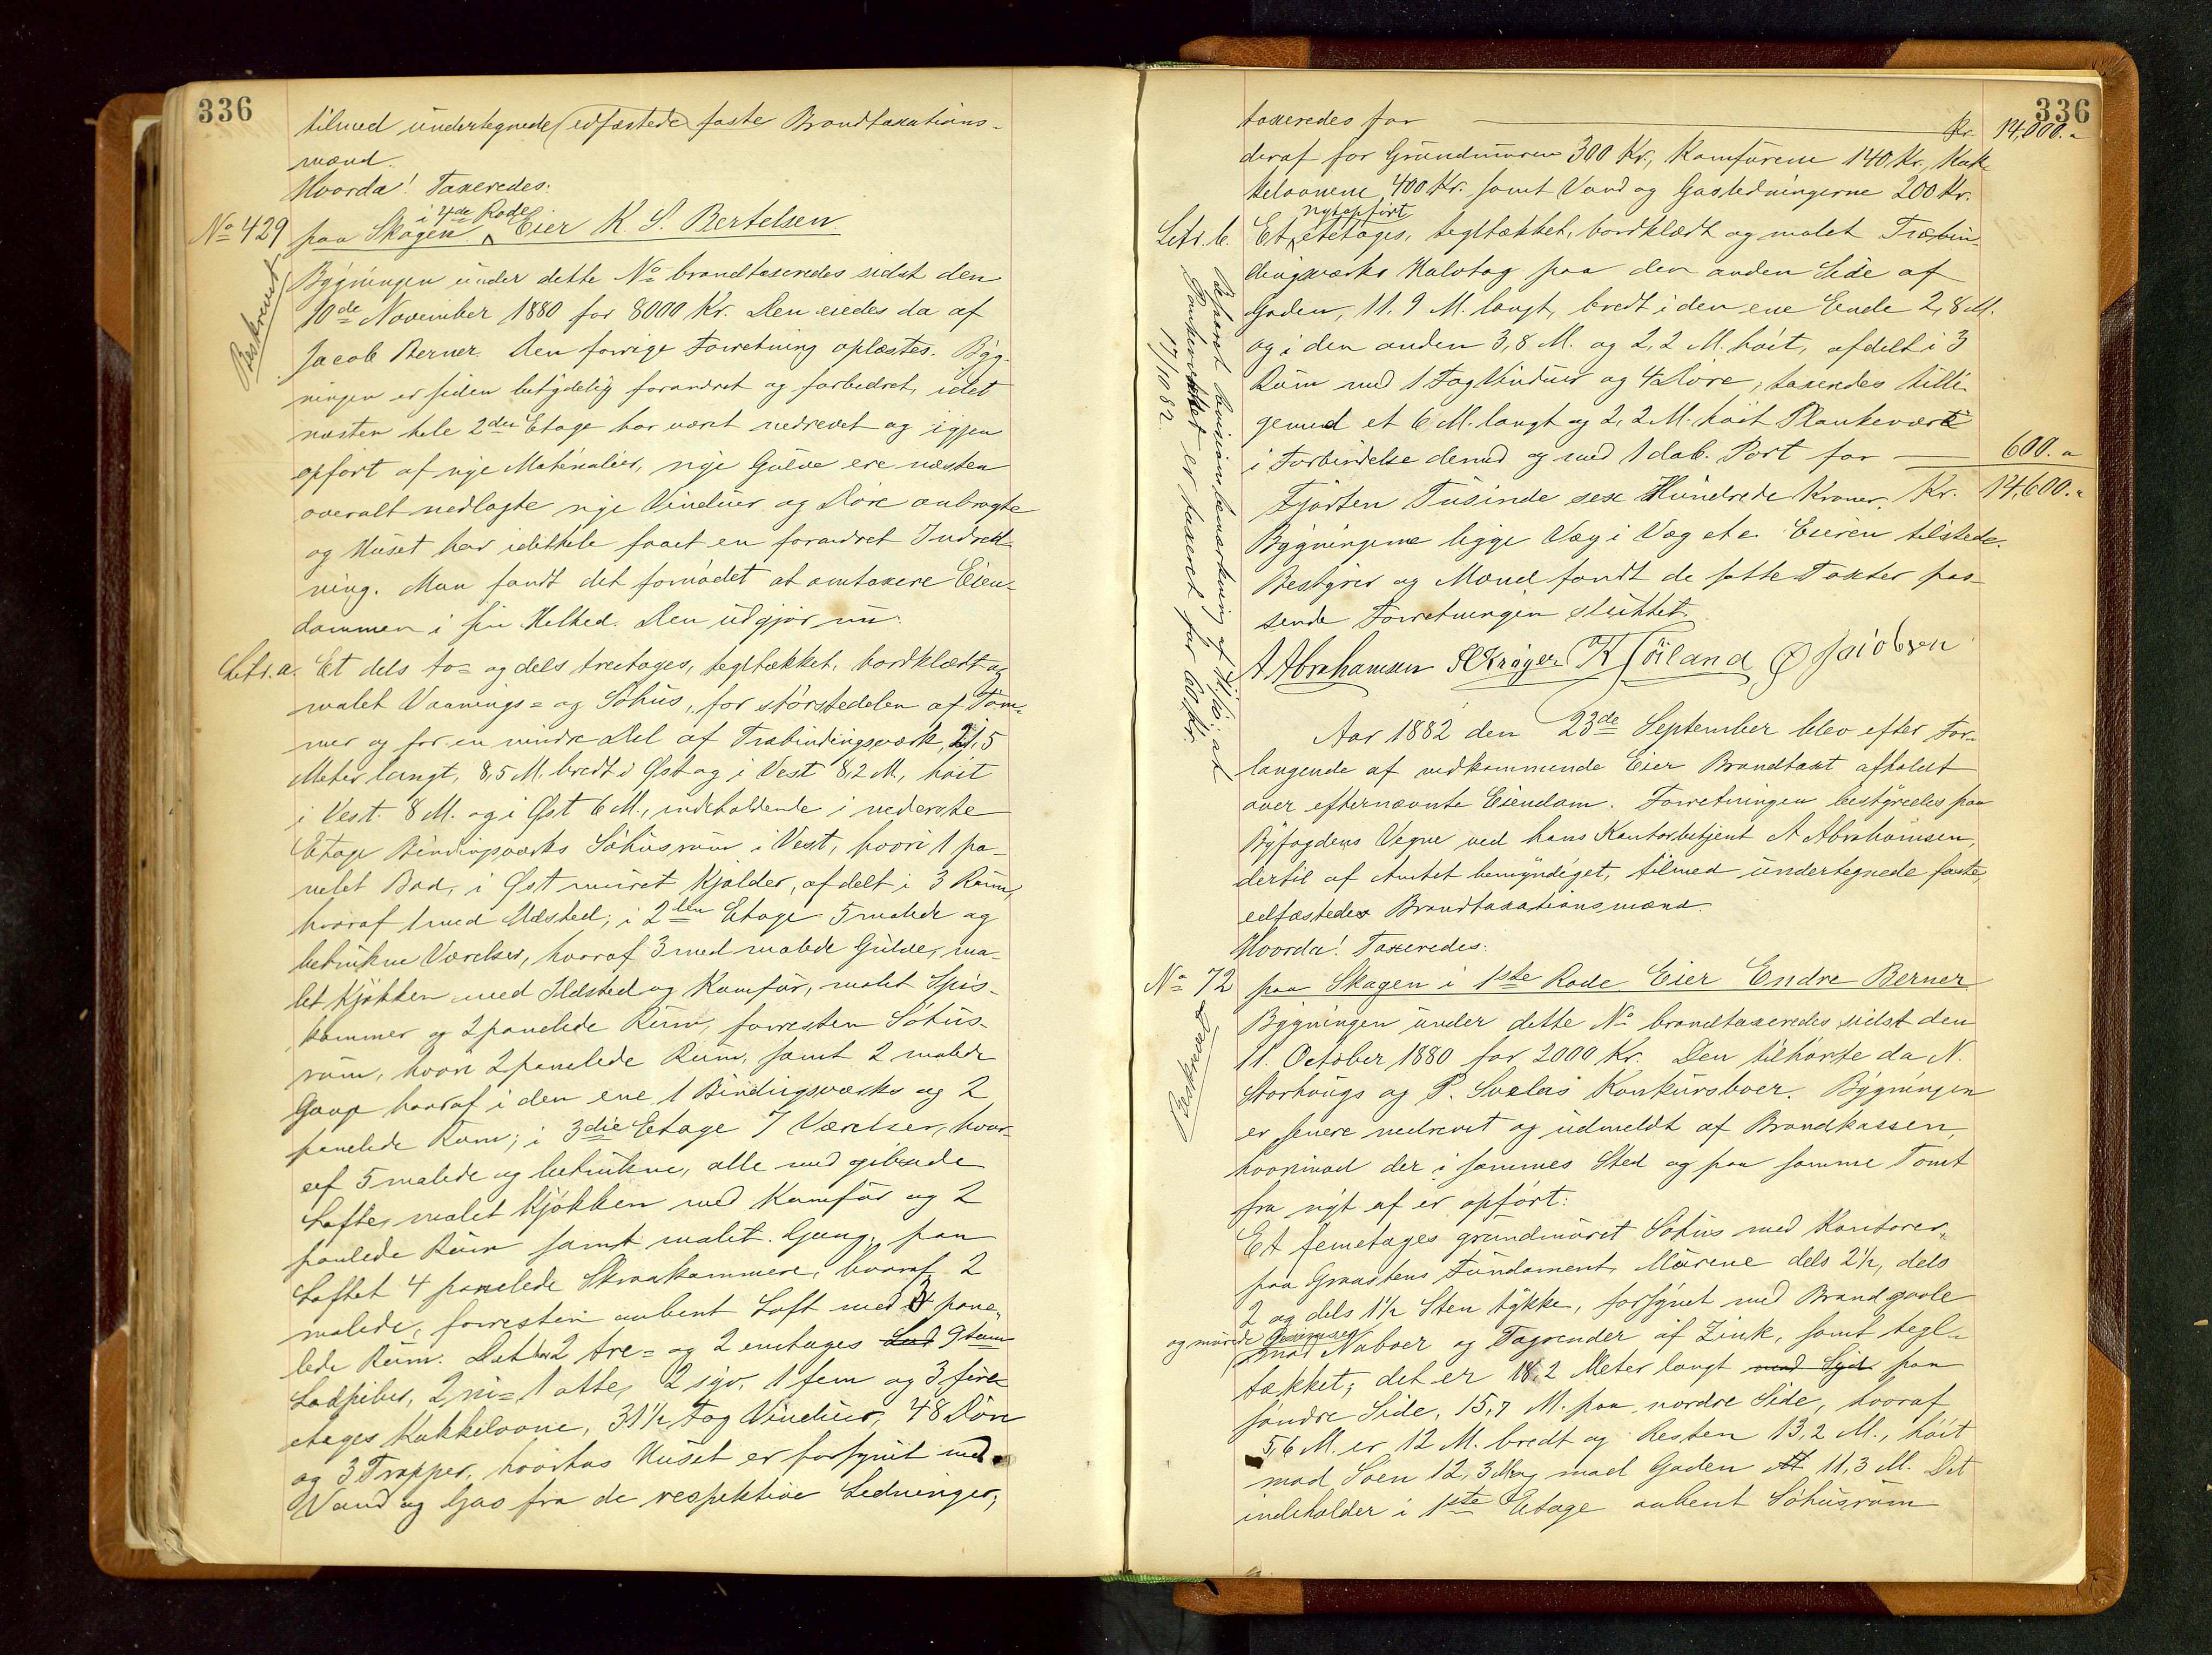 336
tilmed undertegnede edfæstede faste Brandtaxations-
mænd.
Hvorda! Taxeredes.
No 429 paa Skagen i 4de Rode Eier K. S. Bertelsen
Beskrevet
Bygningen under dette No brandtaxeredes sidst den
10de November 1880 for 8000 Kr. Den eiedes da af
Jacob Berner. Den forrige Forretning oplæstes. Byg-
ningen er siden betydelig forandret og forbedret, idet
næsten hele 2den Etage har været nedrevet og igjen
opført af nye Materialier, nye Gulve ere næsten
overalt nedlagte nye Vinduer og Døre anbragte
og Huset har idethele faaet en forandret Indret-
ning. Man fandt det fornødet at omtaxere Eien-
dommen i sin Helhed. Den udgjør nu:
Litr. a. Et dels to= og dels treetages, tegltækket, bordklædt og
malet Vaanings= og Søhus, for størstedelen af Tøm-
mer og for en mindre Del af Træbindingsværk, 21,5
Meter langt, 8,5 M. bredt i Øst og i Vest 8,2 M., høit
i Vest 8 M. og i Øst 6 M., indeholdende i nederste
Etage Bindingsværks Søhusrum i Vest, hvori 1 pa-
nelet Bod, i Øst muret Kjælder, afdelt i 3 Rum,
hvoraf 1 med Ildsted; i 2den Etage 5 malede og
betrukne Værelser, hvoraf 3 med malede Gulve, ma-
let Kjøkken med Ildsted og Komfur, malet Spis-
kammer og 2 panelede Rum, forresten Søhus-
rum, hvori 2 panelede Rum, samt 2 malede
Gange hvoraf i den ene 1 Bindingsværks og 2
panelede Rum; i 3die Etage 7 Værelser, hvor-
af 5 malede og betrukne, alle med gibsede
Lofte, malet Kjøkken med Komfur og 2
panlede Rum samt malet Gang; paa
Loftet 4 panelede Skraakammere, hvoraf 2
malede, forresten aabent Loft med 3 pane-
lede Rum. Det har 2 tre= og 2 enetages Lad 9 tom
Ladpiber, 2 ni= 1 otte, 2 syv, 1 fem og 3 fire
etages Kakkelovne, 31½ Fag Vinduer, 48 Døre
og 3 Trapper, hvorhos Huset er forsynet med
Vand og Gas fra de respektive Ledninger;
336
taxeredes for Kr. 14,000.-
deraf for Grundmuren 300 Kr., Komfurene 140 Kr., Kak-
kelovnene 400 Kr. samt Vand og Gasledningerne 200 Kr.
Litr. b. Et nyopført etetages, tegltækket, bordklædt og malet Træbin-
dingsværks Halvtag paa den anden Side af
Gaden, 11,9 M. langt, bredt i den ene Ende 2,8 M.
og i den anden 3,8 M. og 2,2 M. høit, afdelt i 3
Rum med 1 Fag Vinduer og 4 Døre, taxeredes tilli-
gemed et 6 M. langt og 2,2 M. høit Plankeværk
i Forbindelse dermed og med 1 dob. Port for 600.-
Fjorten Tusinde sex Hundrede Kroner. Kr. 14,600.-
Bygningerne ligge Væg i Væg etc. Eieren tilstede.
Bestyrer og Mænd fandt de satte Taxter pas-
sende Forretningen sluttet.
A Abrahamsen Kröger K Söiland Jacobsen
Plankeværket er taxeret for 60 Kr.
17/10 82.
Aar 1882 den 23de September blev efter For-
langende af vedkommende Eier Brandtaxt afholdt
over efternævnte Eiendom. Forretningen bestyredes paa
Byfogdens Vegne ved hans Kontorbetjent A Abrahamsen,
dertil af Amtet bemyndiget, tilmed undertegnede faste,
edfæstede Brandtaxationsmænd.
Hvorda! Taxeredes:
No 72 paa Skagen i 1ste Rode Eier Endre Berner
Beskrevet
Bygningen under dette No brandtaxeredes sidst den
11. October 1880 for 2000 Kr. Den tilhørte da N.
Storhougs og P. Svelas Konkursboer. Bygningen
er senere nedrevet og udmeldt af Brandkassen,
hvorimod der i sammes Sted og paa samme Tomt
fra nyt af er opført:
Et femetages grundmuret Søhus med Kontorer,
paa Graastens Fundament, Murene dels 2½, dels
2 og dels 1½ Sten tykke, forsynet med Brandgavle
og murede Gesimser
mod Naboer og Tagrender af Zink, samt tegl-
tækket; det er 18,2 Meter langt med Syd paa
søndre Side, 15,7 M. paa nordre Side, hvoraf
5,6 M. er 12 M. bredt og Resten 13,2 M., høit
mod Søen 12,3 M. og mod Gaden 11,3 M. Det
indeholder i 1ste Etage aabent Søhusrum